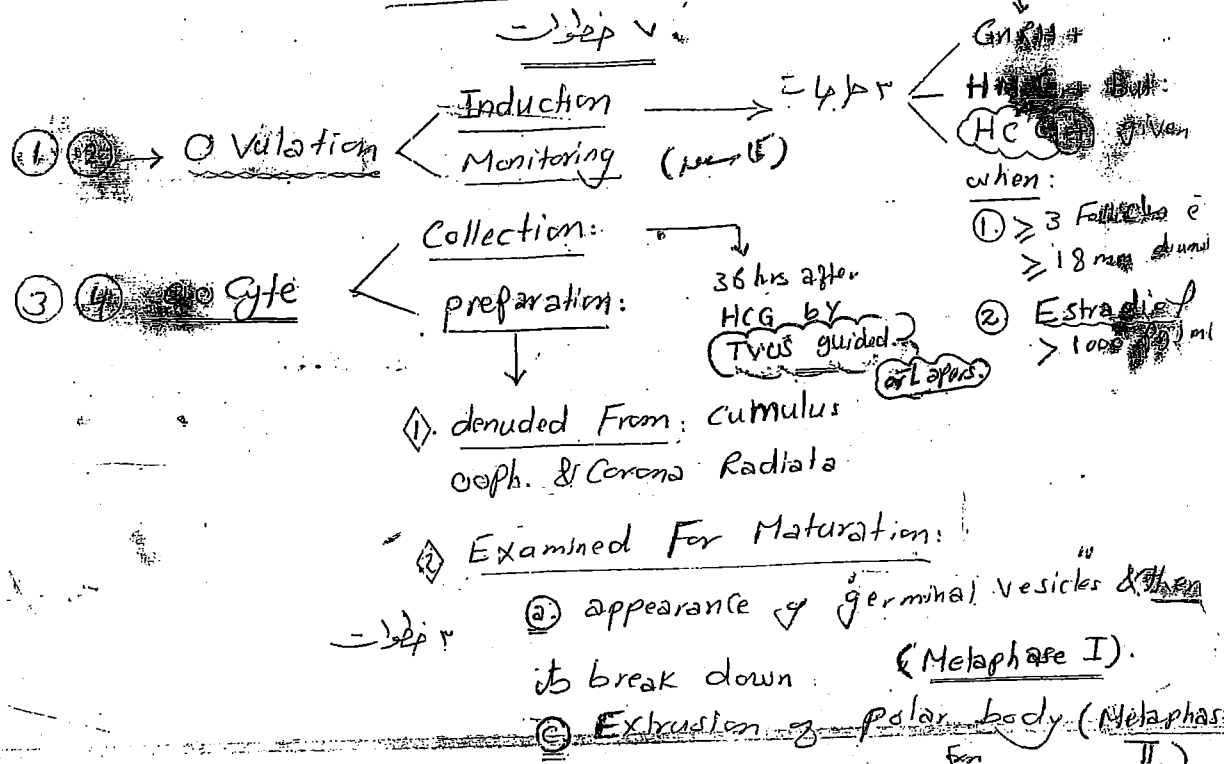 ٧ خطوات
GnRH +
① ② → Ovulation
Induction → ٣ خطوات
Monitoring
HCG given
when:
① ≥ 3 Follicles ē
≥ 18 mm
② Estradiol
> 1000 /ml
③ ④ Cyte
Collection:
36 hrs after
HCG by
TVUS guided.
or Lapars.
preparation:
① denuded From: Cumulus
ooph. & Corona Radiata
② Examined For Maturation:
٣ خطوات
ⓐ appearance of germinal vesicles & then
its break down (Metaphase I).
ⓒ Extrusion of polar body (Metaphase
II)